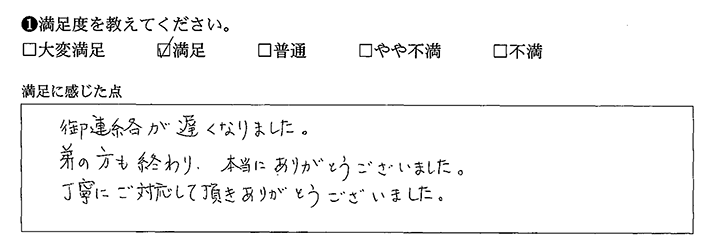 ❶満足度を教えてください。
□大変満足 ☑満足 □普通 □やや不満 □不満
満足に感じた点
御連絡が遅くなりました。
弟の方も終わり、本当にありがとうございました。
丁寧にご対応して頂きありがとうございました。